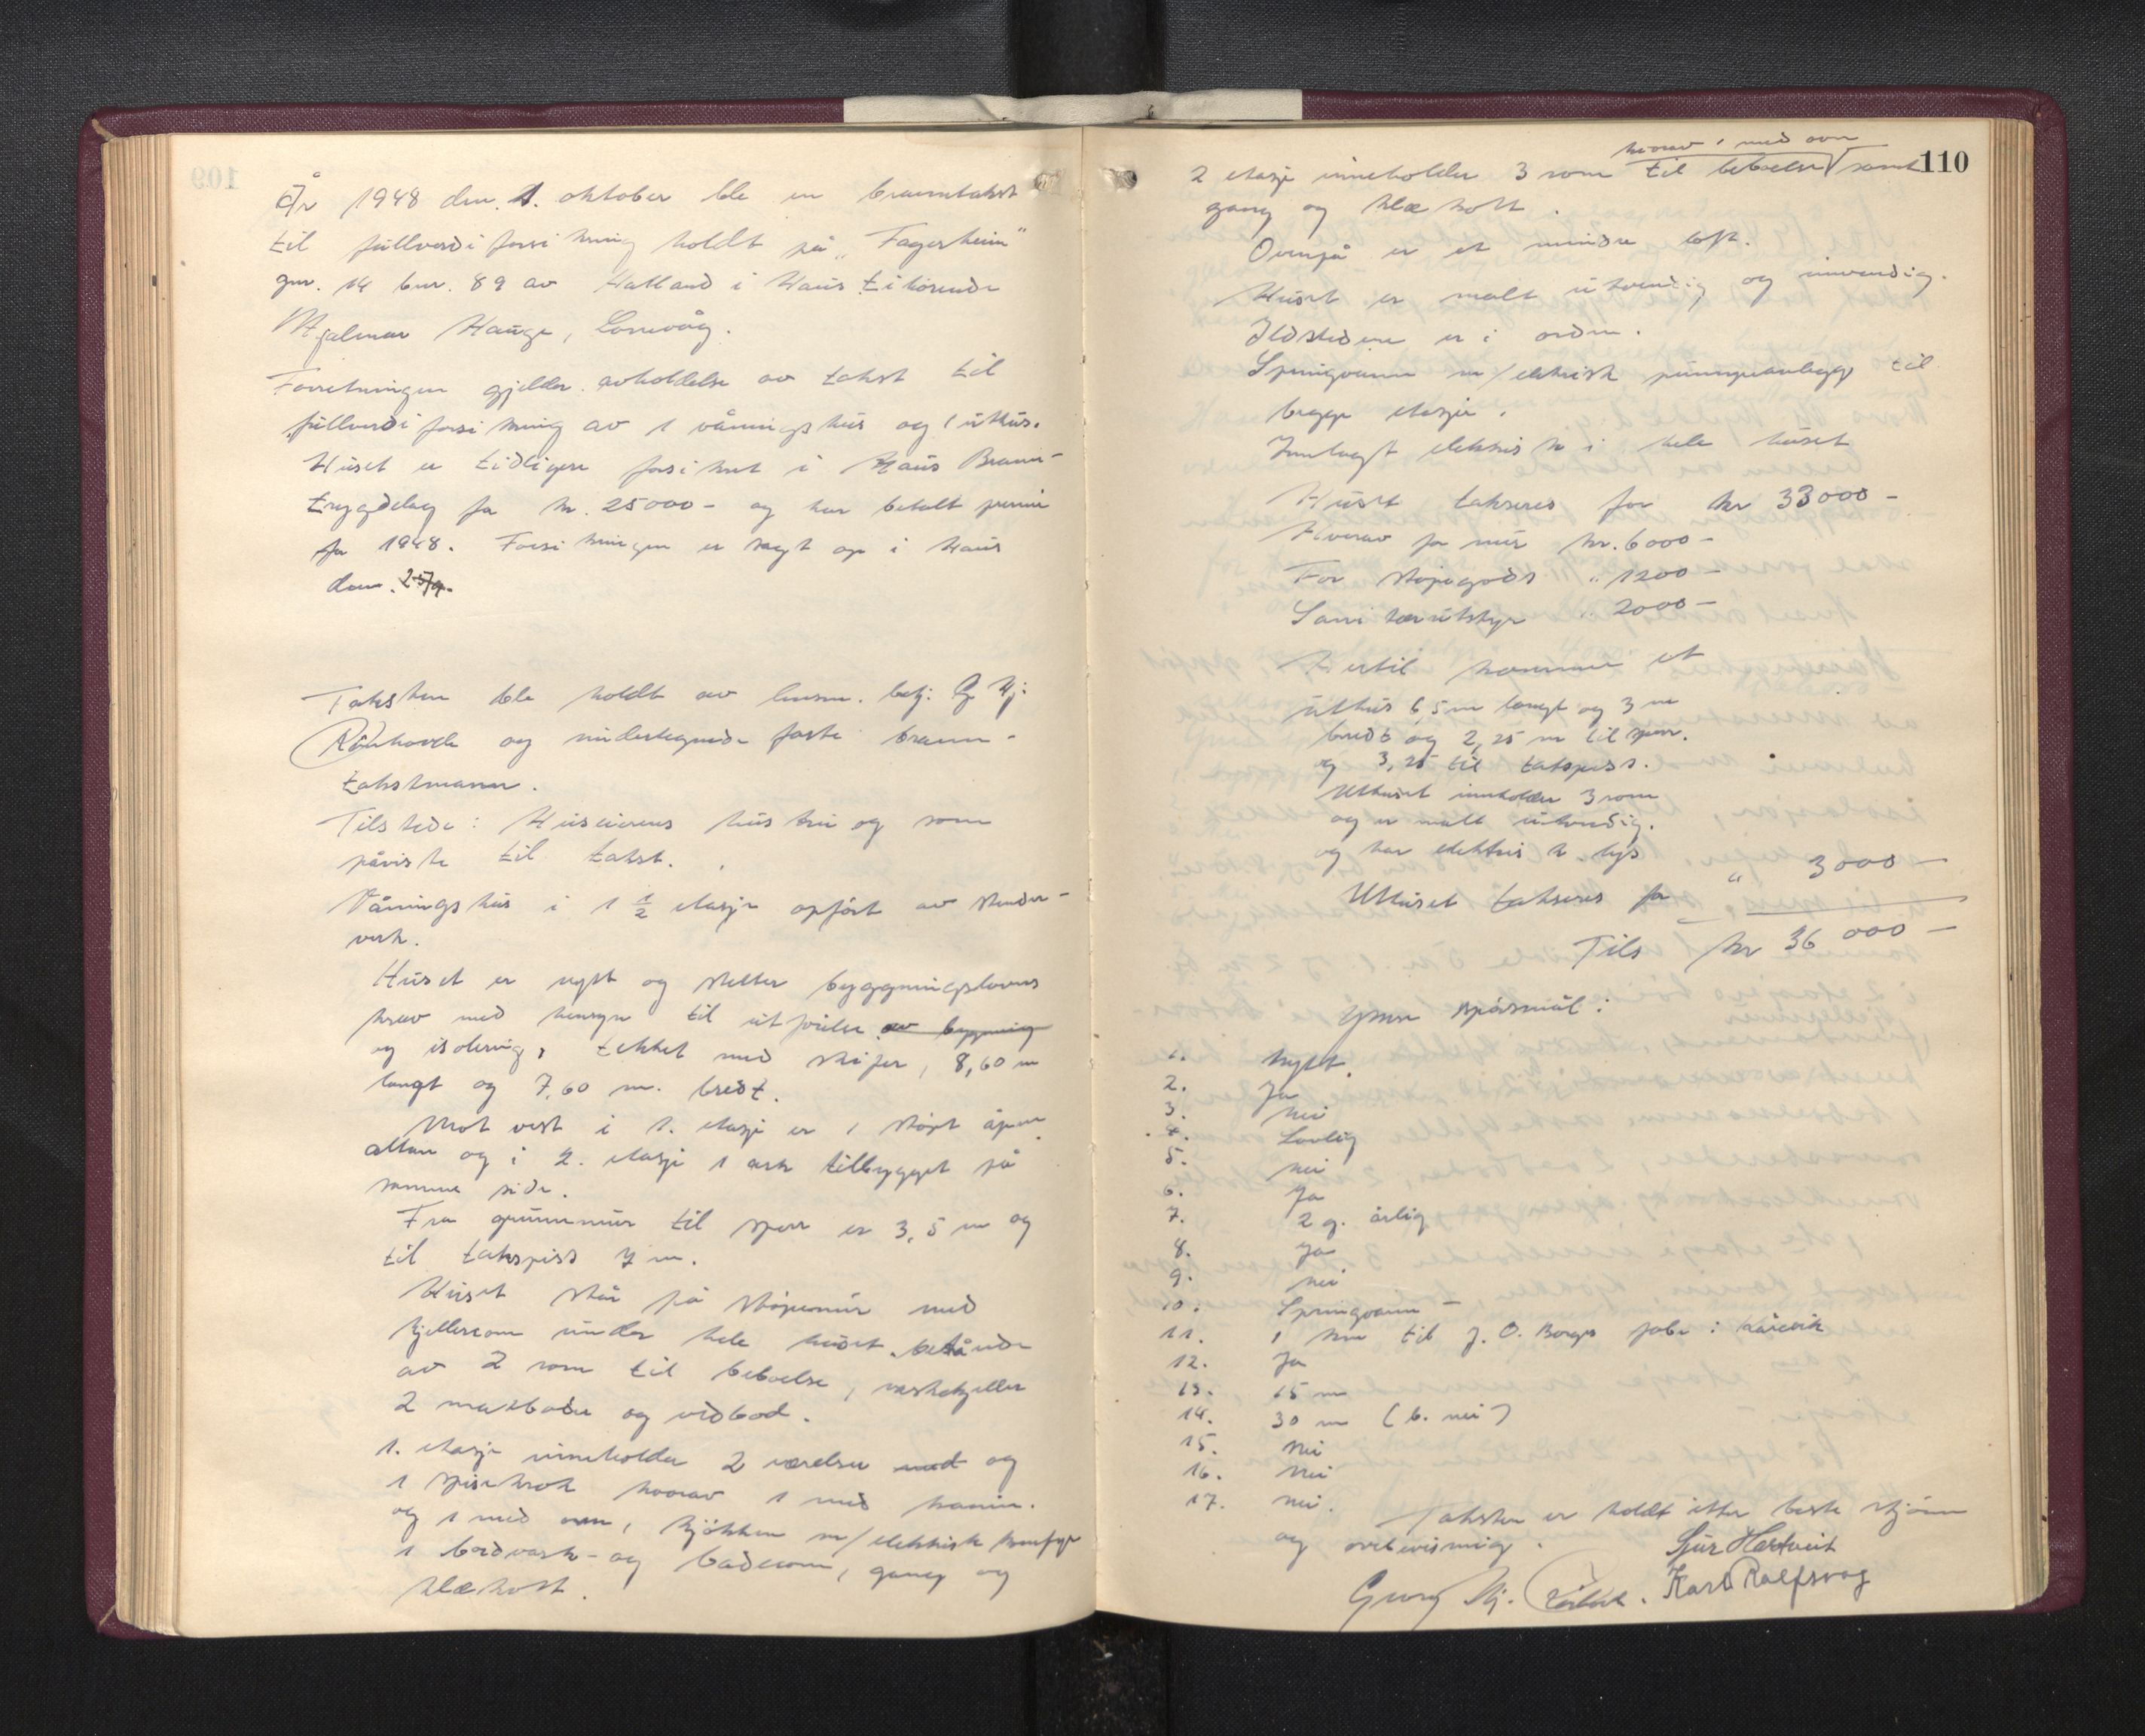 År 1948 den 1. oktober ble en branntakst
til fullverdiforsikring holdt på „Fagerheim"
gnr. 14 bnr. 89 av Hatland i Haus tilhørende
Hjalmar Hauge, Lonevåg.
Forretningen gjelder avholdelse av takst til
fullverdiforsikring av 1 våningshus og 1 uthus.
Huset er tidligere forsikret i Haus Brann-
trygdelag for kr. 25000- og har betalt premie
for 1948. Forsikringen er sagt op i Haus
den 25/9.
Taksten ble holdt av lensm. betj. G. Hj.
og undertegnede faste brann-
takstmann.
Tilstede: Huseierens hustru og som
påviste til takst.
Våningshus i 1 1/2 etasje opført av stender-
verk.
Huset er nytt og støtter byggningslovens
krav med hensyn til utførelse av byggning
og isolering, tekket med skifer, 8,60 m
langt og 7,60 m. bredt.
Mot vest i 1. etasje er 1 støpt åpen
altan og i 2. etasje 1 ark tilbygget på
samme side.
Fra grunnmur til sperr er 3,5 m og
til takspiss 7 m.
Huset står på støpemur med
kjellerrom under hele huset bestående
av 2 rom til beboelse, vaskekjeller
2 matboder og vedbod.
1. etasje inneholder 2 værelser med og
1 spisekrok hvorav 1 med kamin.
og 1 med ovn, kjøkken m/elektrisk komfyr
1 bordvask- og baderom, gang og
klækott.
110
hvorav 1 med ovn
2 etasje inneholder 3 rom til beboelse samt
gang og klækott.
Ovenpå er et mindre loft.
Huset er malt utvendig og innvendig.
Ildstedene er i orden.
Springvann m/elektrisk pumpeanlegg til
begge etasjer.
Innlagt elektrisk i hele huset
Huset takseres for kr 33000-
Hvorav for mur kr. 6000-
For støpegods " 1200-
Sanitærutstyr " 2000-
Hertil kommer et
uthus 6,5 m langt og 3 m
bredt og 2,25 m til sperr.
og 3,25 til takspiss.
Uthuset inneholder 3 rom
og er malt utvendig.
og har elektrisk lys
Uthuset takseres for " 3000-
Tils kr 36 000-
spørsmål:
1. Nytt.
2. Ja
3. Nei
4. Lovlig
5. nei
6. Ja
7. 2 g. årlig
8. Ja
9. nei
10. Springvann -
11. 1 km til J. O. Borges fabr. i
12. Ja
13. 15 m
14. 30 m (b. nei)
15. Nei
16. Nei
17. Nei.
Taksten er holdt etter beste skjønn
og overbevisning.
Sjur Hartveit
Georg Hj. Karl Rolfsvåg